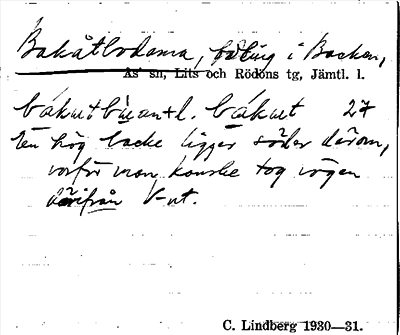 Bakåtbodarna, fäbling i Backen,
Ås sn, Lits och Rödöns tg, Jämtl. l.
bákut 27
En hög backe ligger söder därom,
varför man kanske tog vägen
därifrån V-ut.
C. Lindberg 1930—31.